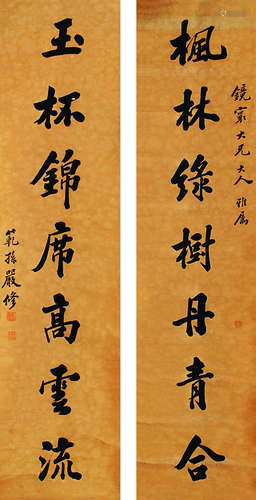 鏡賓大兄大人雅属
楓林綠樹丹青合
玉杯錦席高雲流
範孫嚴修